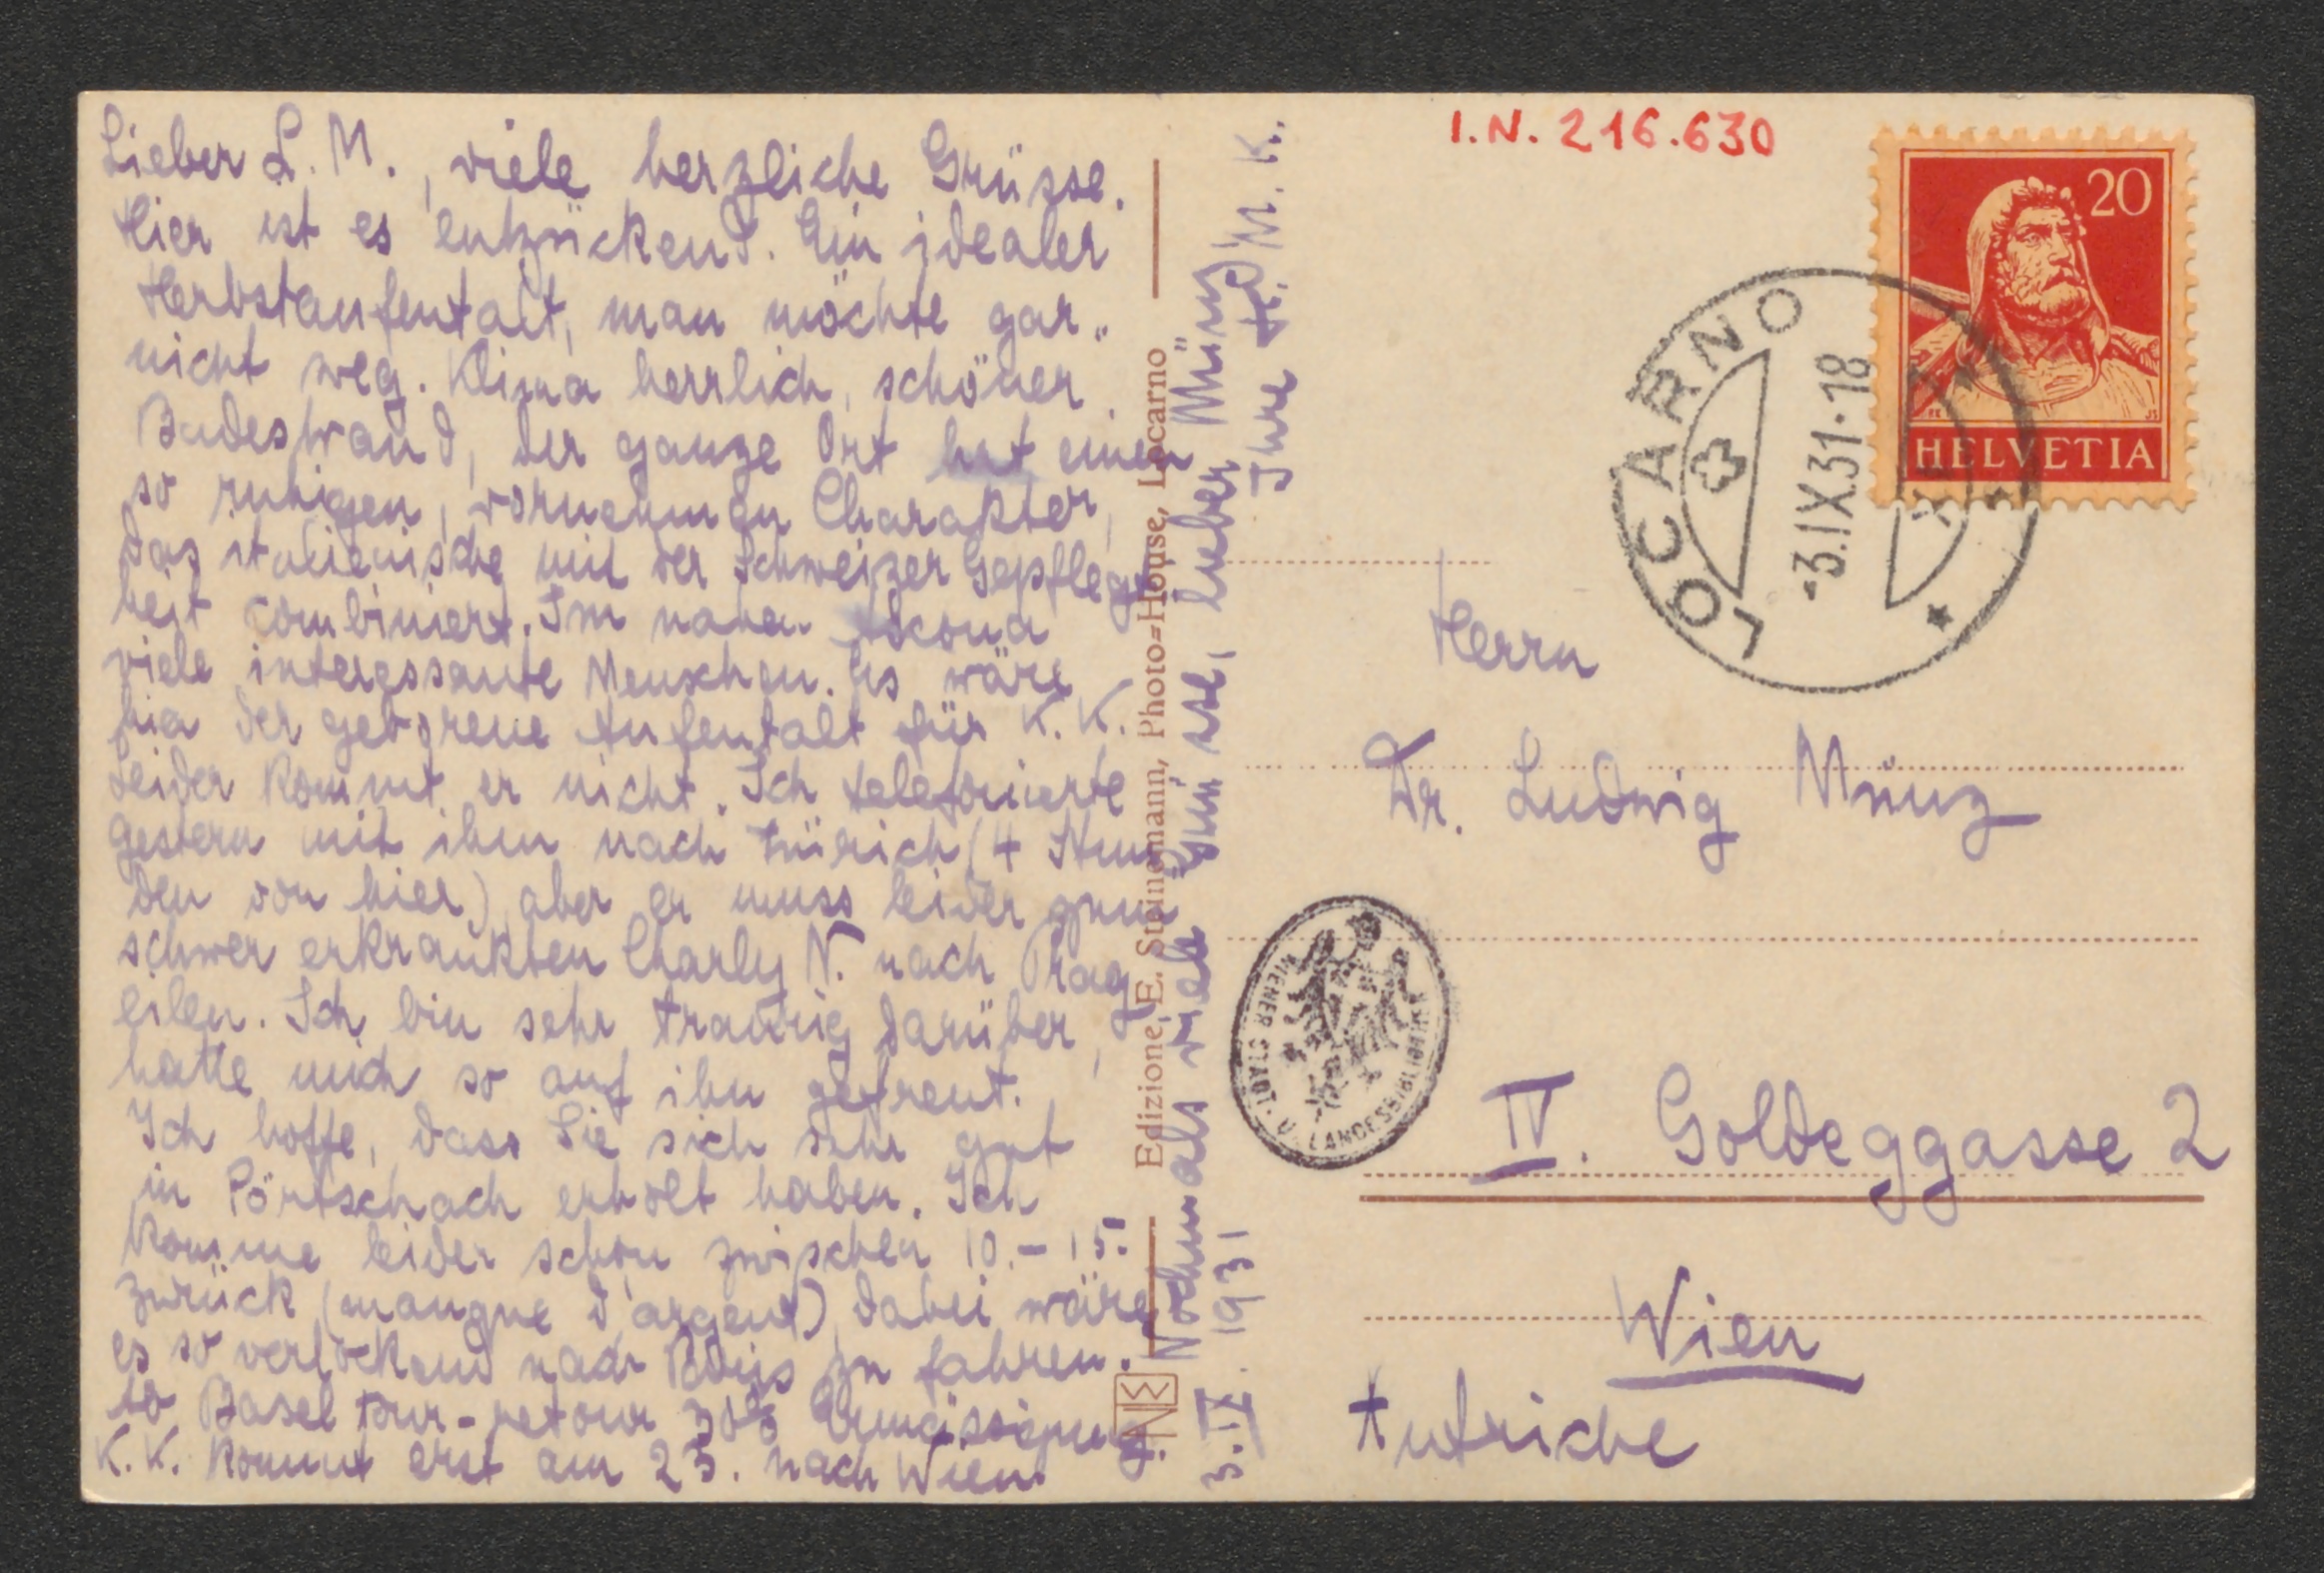 Lieber L. M., viele herzliche Grüsse.
Hier ist es entzückend. Ein idealer
Herbstaufentalt, man möchte gar
nicht weg. Klima herrlich, schöner
Badestrand, der ganze Ort hat einen
so ruhigen, vornehmen Charakter,
das italienische mit der Schweizer Gepflegt
heit combiniert. Im nahen Ascona
viele interessante Menschen. Es wäre
hier der geborene Aufentalt für K. K.
Leider kommt er nicht. Ich telefonierte
gestern mit ihm nach Zürich (4 Stun
den von hier) aber er muss leider zum
schwer erkrankten Charly N. nach Prag
eilen. Ich bin sehr traurig darüber,
hatte mich so auf ihn gefreut.
Ich hoffe, dass Sie sich sehr gut
in Pörtschach erholt haben. Ich
komme leider schon zwischen 10.-15.
zurück (manque d'argent) dabei wäre
es so verlockend nach Paris zu fahren.
Basel tour-retour 30% Ermässigung.
K. K. kommt erst am 25. nach Wien.
Nochmals viele Grüsse, lieber Münz
Ihre H. M. K.
3. IX. 1931
Edizione E. Steinemann, Photo=House, Locarno
NE
I.N. 216.630
20
HELVETIA
LOCARNO
-3.IX.31-18
Herrn
Dr. Ludwig Münz
WIENER STADT- U. LANDESBIBLIOTHEK
IV. Goldeggasse 2
Wien
Autriche